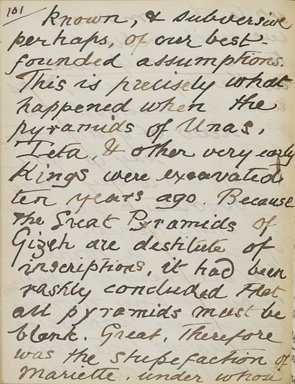 101
known, & subversive
perhaps, of our best
founded assumptions.
This is precisely what
happened when the
pyramids of Unas,
Teta, & other very early
Kings were excavated
ten years ago. Because
the Great Pyramids of
Gizeh are destitute of
inscriptions, it had been
rashly concluded that
all pyramids must be
blank. Great, therefore
was the stupefaction of
Mariette, under whose